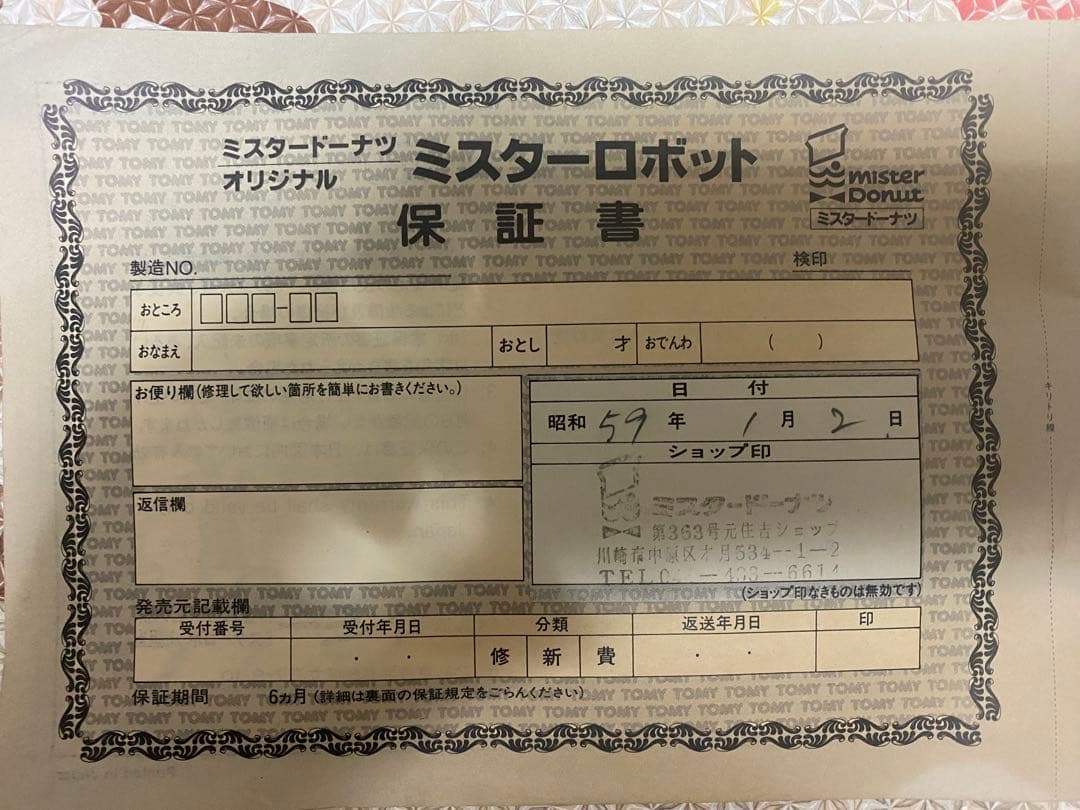 ミスタードーナツ
オリジナル
ミスターロボット
mister
Donut
ミスタードーナツ
保証書
製造NO.
検印
おところ □□□-□□
おなまえ おとし 才 おでんわ ( )
お便り欄(修理して欲しい箇所を簡単にお書きください。)
日付
昭和 59 年 1 月 2 日
ショップ印
返信欄
ミスタードーナツ
第363号元住吉ショップ
川崎市中原区 月534--1-2
TEL 0 -433--6614
(ショップ印なきものは無効です)
発売元記載欄
受付番号 受付年月日 分類 返送年月日 印
・ ・ 修 新 費 ・ ・
保証期間 6ヵ月(詳細は裏面の保証規定をごらんください)
キリトリ線
TOMY TOMY TOMY TOMY TOMY TOMY